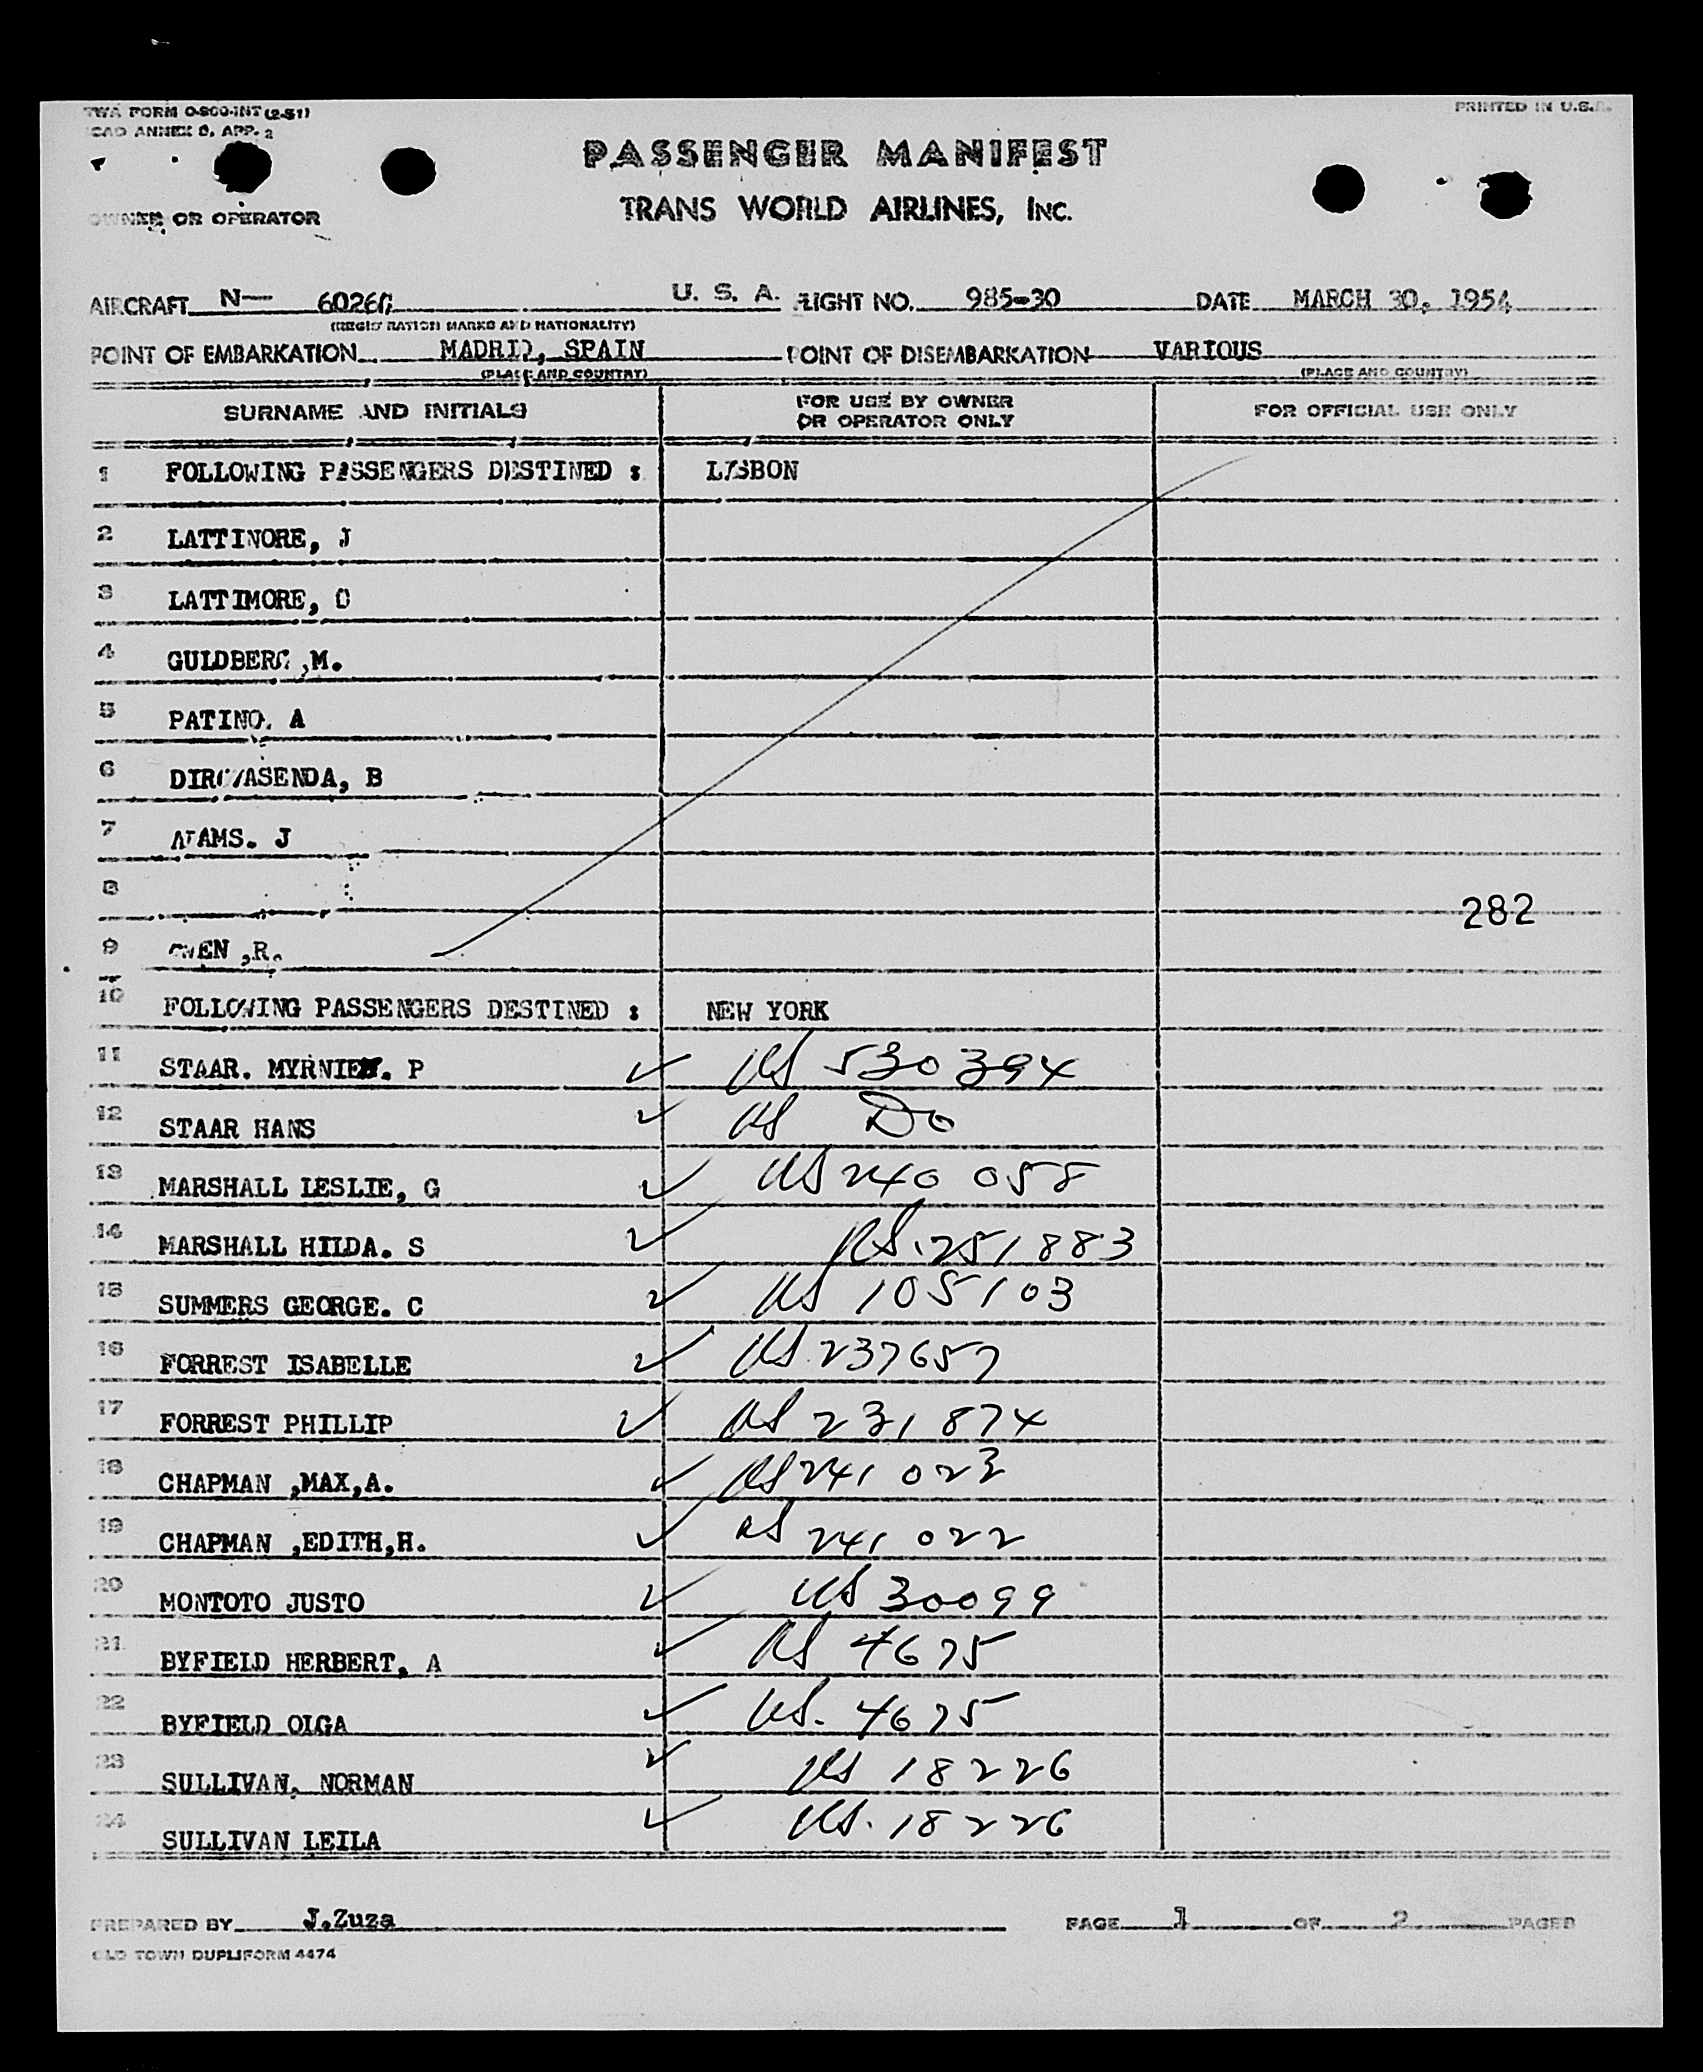 TWA FORM O-800-INT (2-51)
PRINTED IN U.S.A.
ICAO ANNEX 9, APP. 2
PASSENGER MANIFEST
TRANS WORLD AIRLINES, INC.
OWNER OR OPERATOR
AIRCRAFT N— 6026C U. S. A. FLIGHT NO. 985-30 DATE MARCH 30, 1954
(REGISTRATION MARKS AND NATIONALITY)
POINT OF EMBARKATION MADRID, SPAIN POINT OF DISEMBARKATION VARIOUS
(PLACE AND COUNTRY) (PLACE AND COUNTRY)
SURNAME AND INITIALS FOR USE BY OWNER OR OPERATOR ONLY FOR OFFICIAL USE ONLY
1 FOLLOWING PASSENGERS DESTINED : LISBON
2 LATTINORE, J
3 LATTIMORE, O
4 GULDBERG ,M.
5 PATINO. A
6 B
7 ADAMS. J
8
282
9 OWEN ,R.
10 FOLLOWING PASSENGERS DESTINED : NEW YORK
11 STAAR. P ✓ US 530394
12 STAAR HANS ✓ US Do
13 MARSHALL LESLIE, G ✓ US 240 058
14 MARSHALL HILDA. S ✓ US.251883
15 SUMMERS GEORGE. C ✓ US 105103
16 FORREST ISABELLE ✓ US 237657
17 FORREST PHILLIP ✓ US 231874
18 CHAPMAN ,MAX,A. ✓ US 241 023
19 CHAPMAN ,EDITH,H. ✓ US 241 022
20 MONTOTO JUSTO ✓ US 30099
21 BYFIELD HERBERT, A ✓ US 4675
22 BYFIELD OLGA ✓ US. 4675
23 SULLIVAN, NORMAN ✓ US 18226
24 SULLIVAN LEILA ✓ US. 18226
PREPARED BY J.Zuza PAGE 1 OF 2 PAGES
OLD TOWN DUPLIFORM 4474